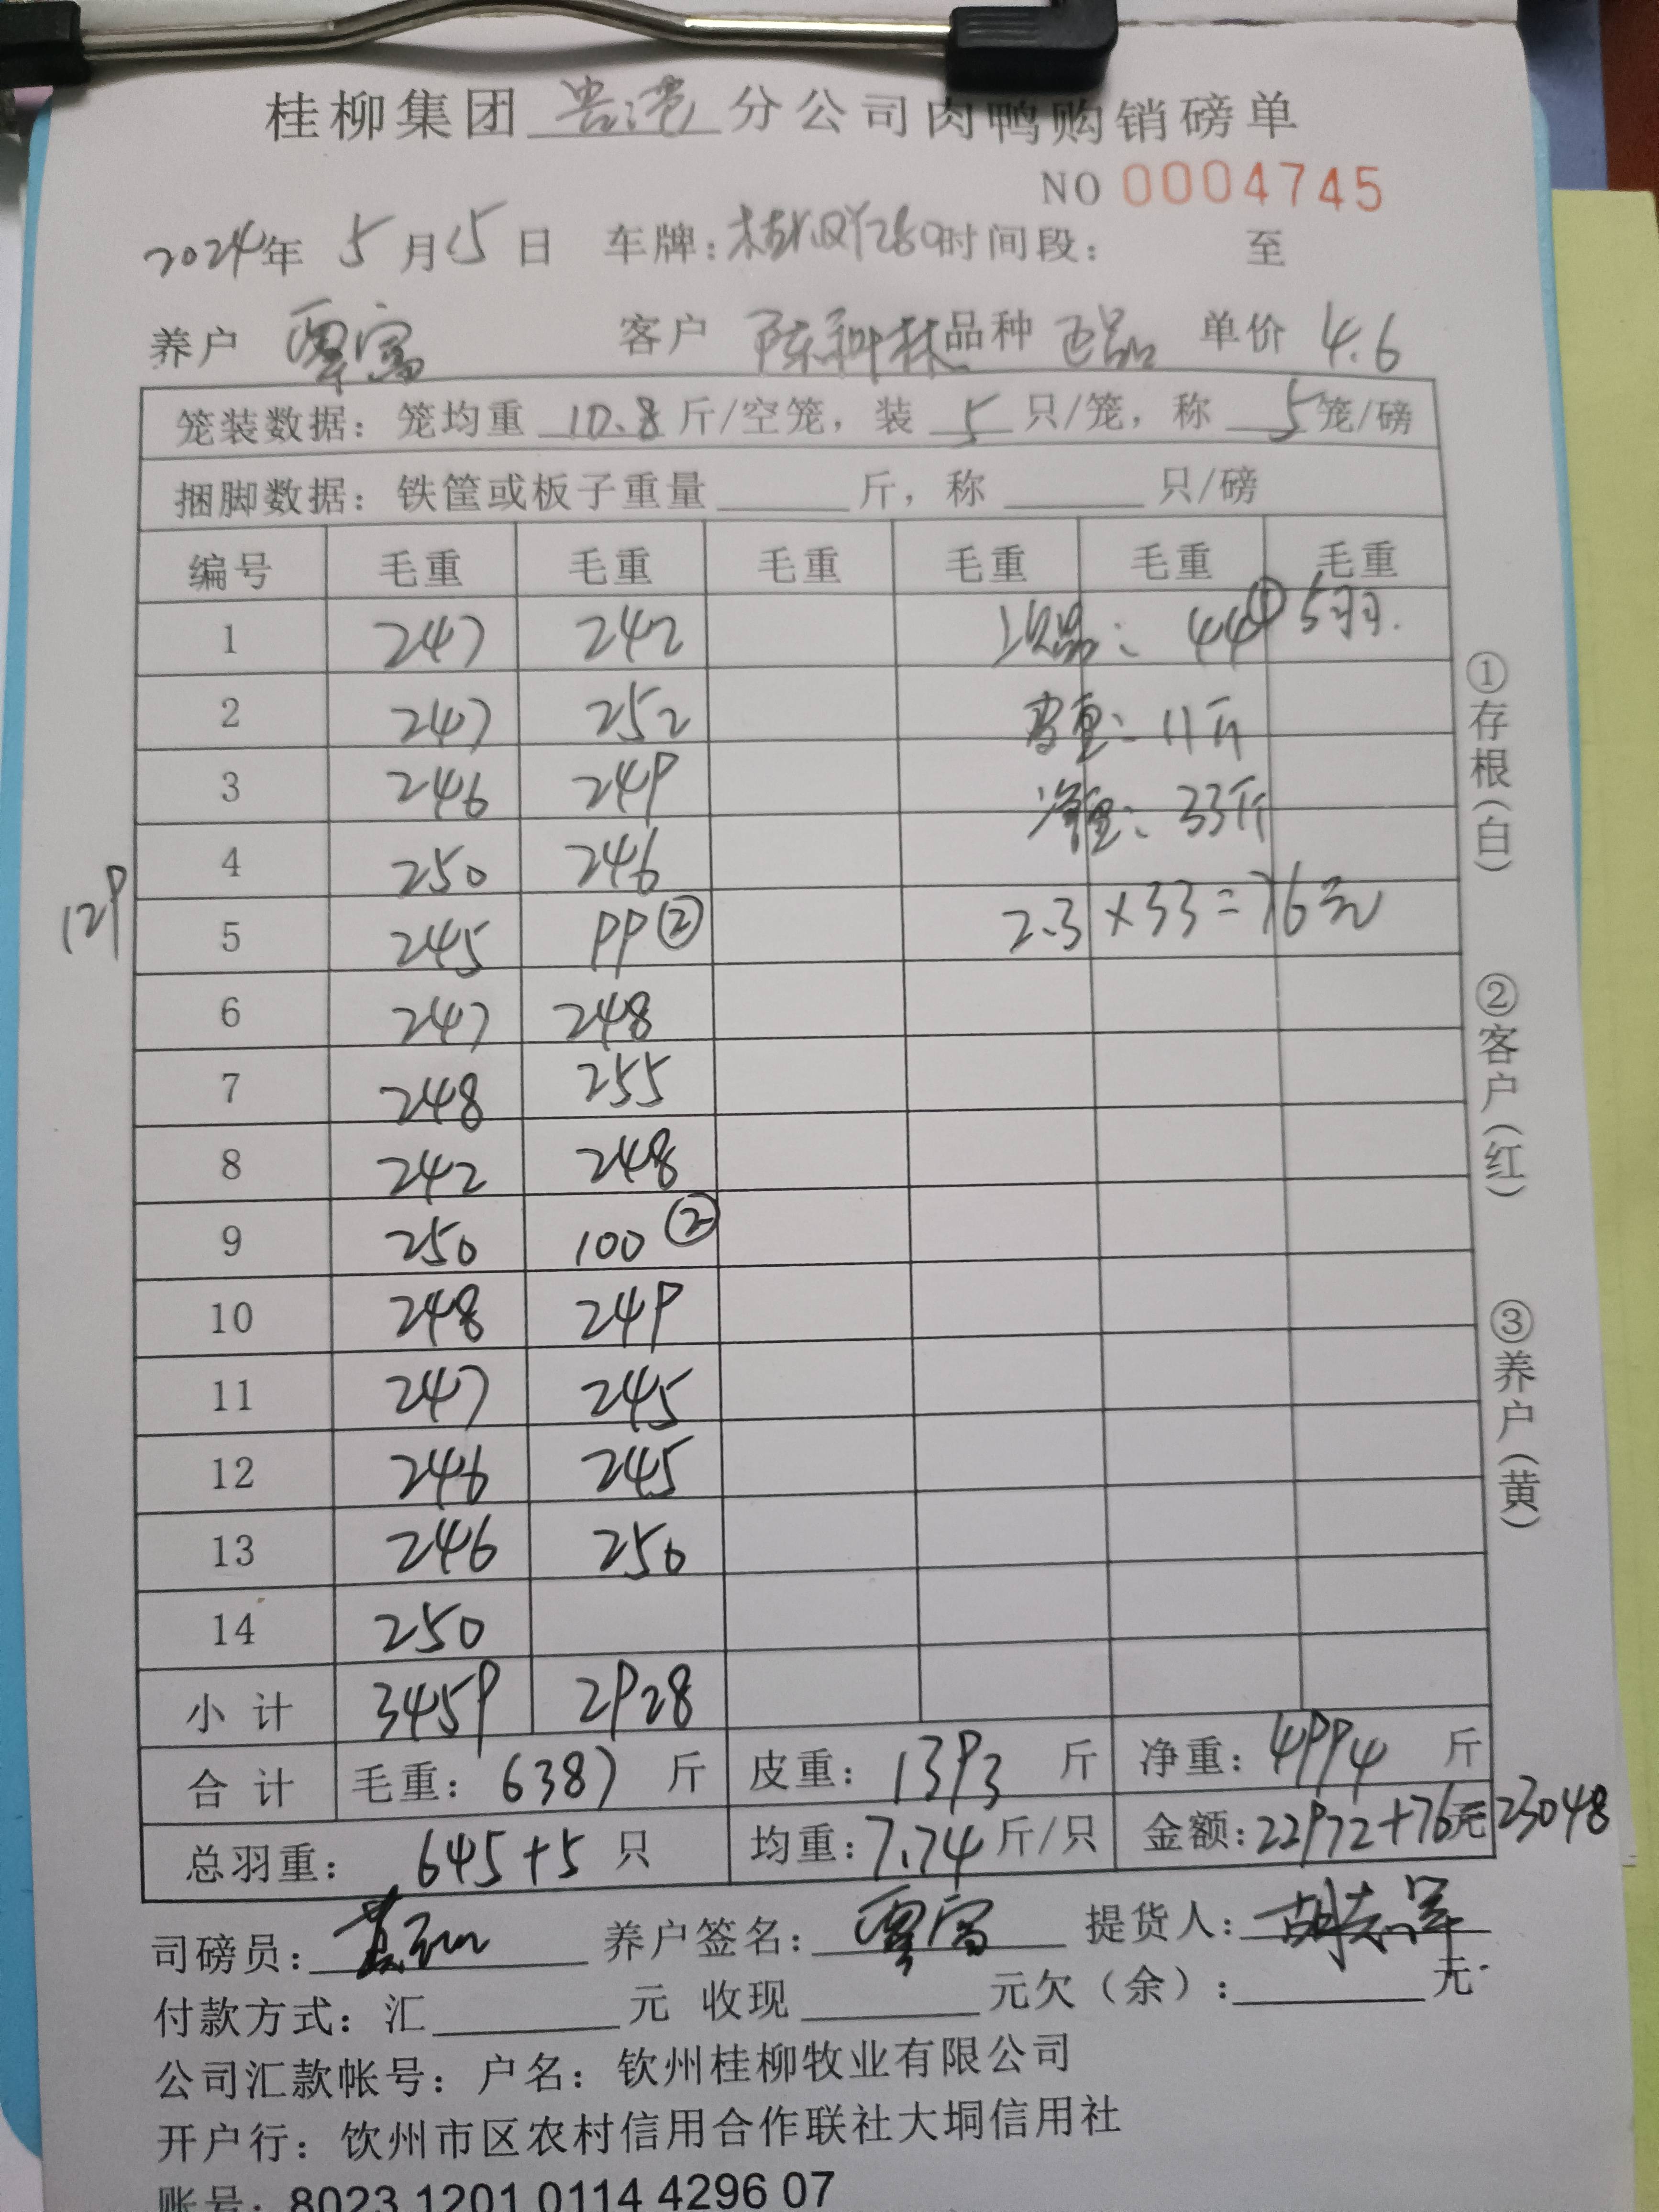 桂柳集团 贵港 分公司肉鸭购销磅单
NO 0004745
2024年 5月15日 车牌: 时间段: 至
养户 覃富 客户 陈科林 品种 正品 单价 4.6
笼装数据: 笼均重 10.8 斤/空笼, 装 5 只/笼, 称 5 笼/磅
捆脚数据: 铁筐或板子重量 斤, 称 只/磅
编号 毛重 毛重 毛重 毛重 毛重 毛重
1 247 242 次品: 44① 5羽.
2 247 252 皮重: 11斤
3 246 249 净重: 33斤
4 250 246
129
5 245 99② 2.3×33=76元
6 247 248
7 248 255
8 242 248
9 250 100②
10 248 249
11 247 245
12 246 245
13 246 250
14 250
小计 3459 2928
合计 毛重: 6387 斤 皮重: 1393 斤 净重: 4994 斤
总羽重: 645+5 只 均重: 7.74 斤/只 金额: 22972+76元 23048
司磅员: 养户签名: 覃富 提货人:
付款方式: 汇 元 收现 元欠(余): 元
公司汇款帐号: 户名: 钦州桂柳牧业有限公司
开户行: 钦州市区农村信用合作联社大垌信用社
账号: 8023 1201 0114 4296 07
①存根(白)
②客户(红)
③养户(黄)